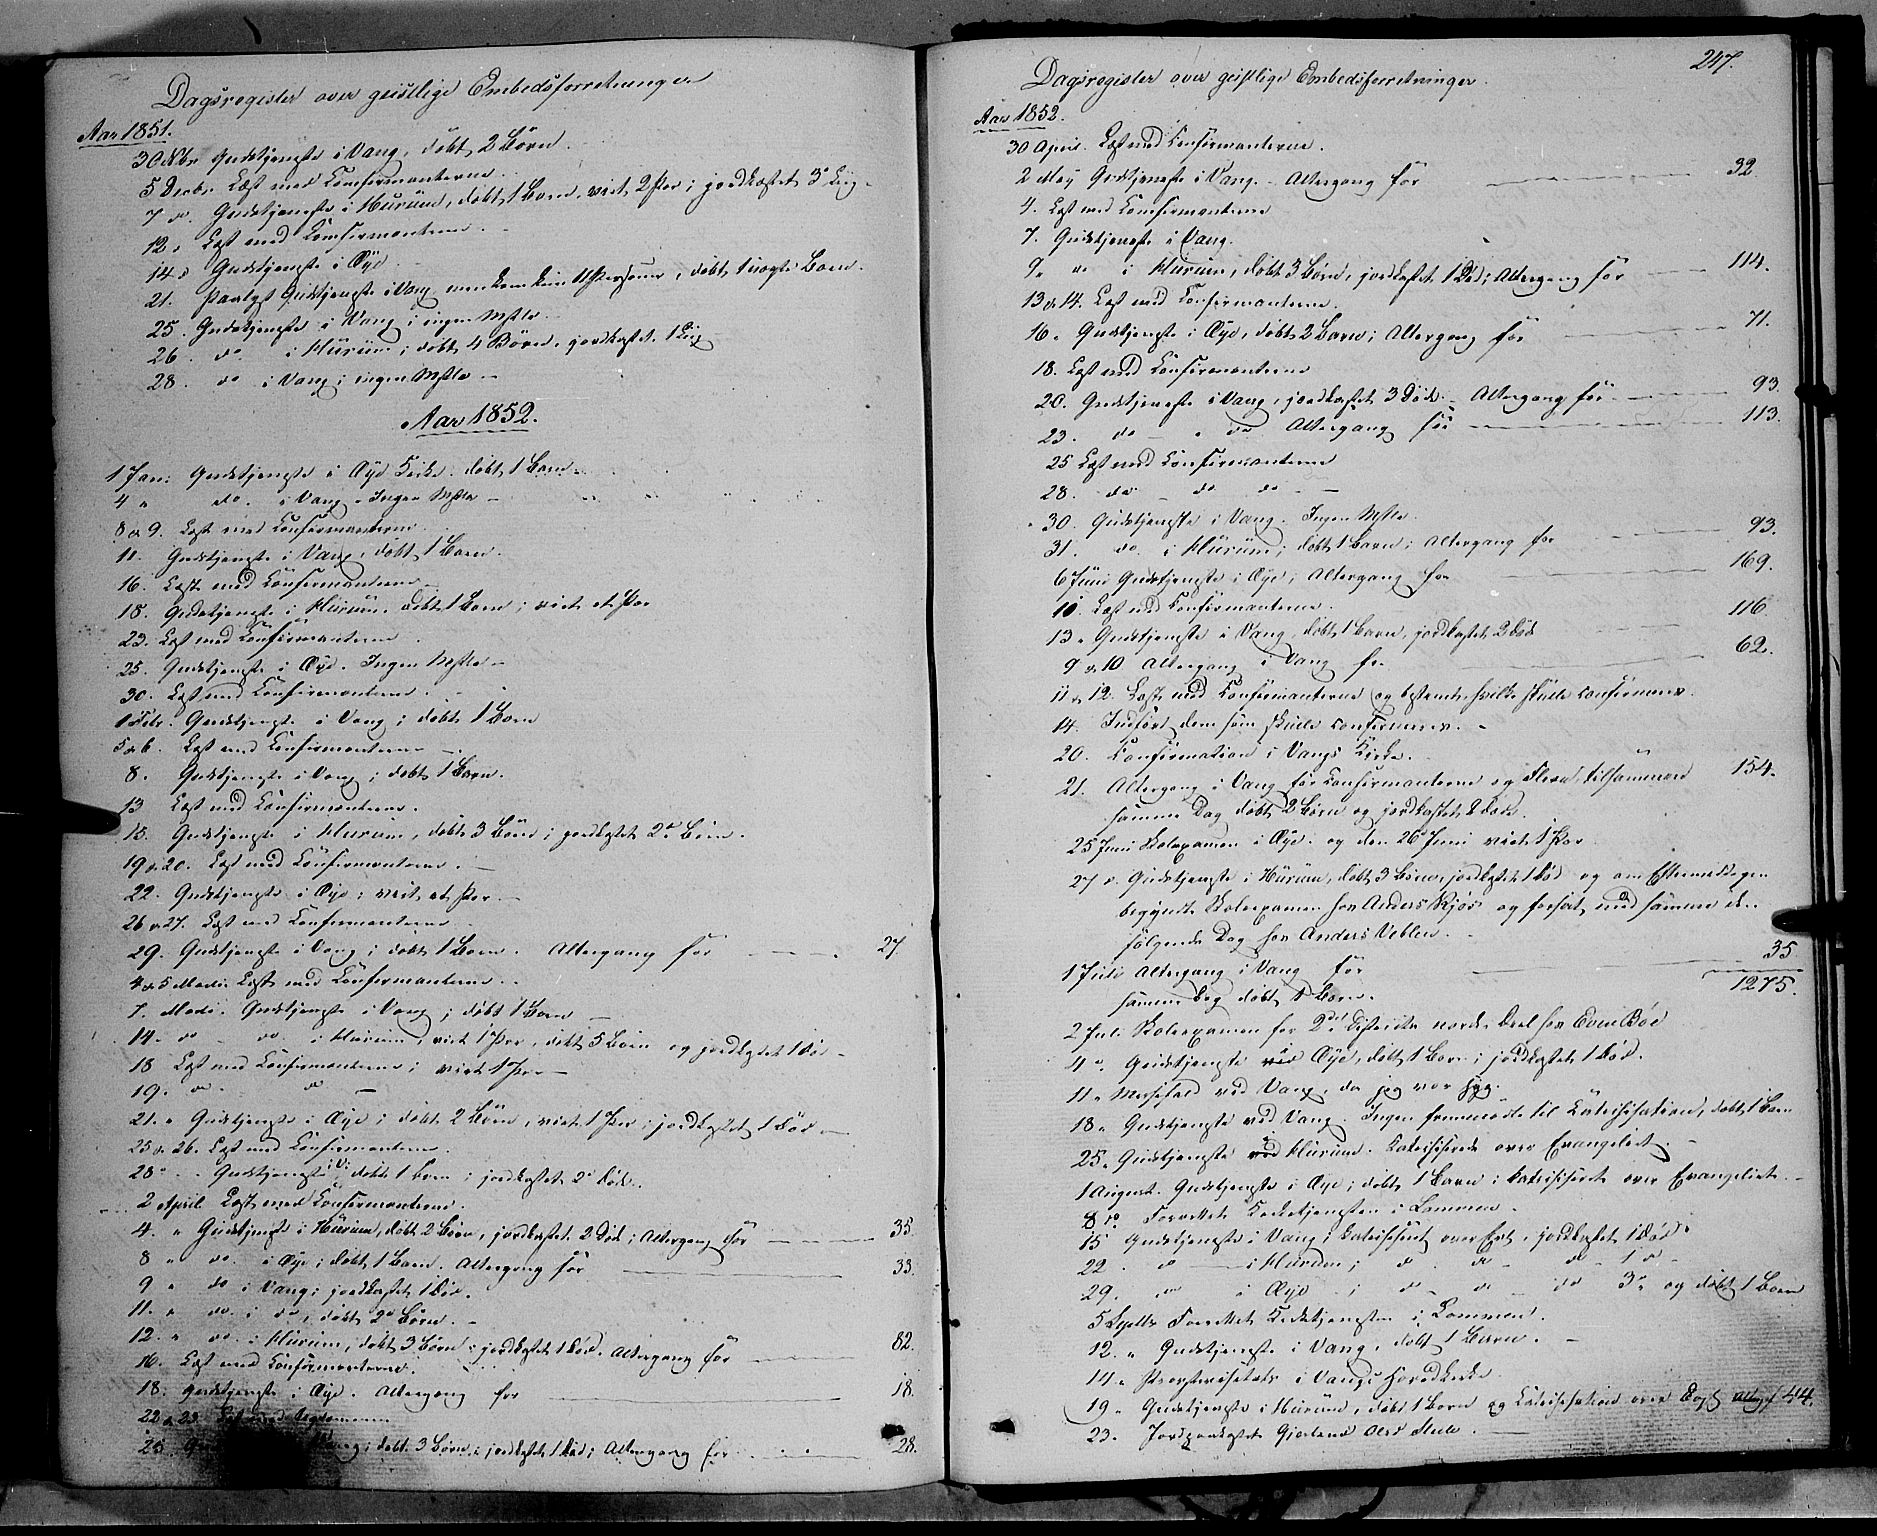 Dagsregister over geistlige Embedsforretninger
Aar 1851.
30 Nbr Gudstjeneste i Vang, døbt 2 Børn.
5 Decbr. Læst med Confirmanterne.
7 do. Gudstjeneste i Hurum, døbt 1 Barn, viet 2 Par; jordkastet 3 Liig.
12 " Læst med Confirmanterne.
14 " Gudstjeneste i Øye.
21. Gudstjeneste i Vang, men kom kun 11 Personer, døbt 1 uægte Barn.
25. Gudstjeneste i Vang; ingen
26. do i Hurum; døbt 4 Børn, jordkastet 1 Liig
28. do i Vang; ingen
Aar 1852.
1 Jan: Gudstjeneste i Øye Kirke. døbt 1 Barn.
4 " do. i Vang. Ingen
8 & 9. Læst med Confirmanterne.
11. Gudstjeneste i Vang, døbt 1 Barn.
16. Læst med Confirmanterne
18. Gudstjeneste i Hurum. døbt 1 Barn; viet et Par
23. Læst med Confirmanterne
25. Gudstjeneste i Øye. Ingen
30. Læst med Confirmanterne.
1 Febr. Gudstjeneste i Vang; døbt 1 Barn
5 & 6. Læst med Confirmanterne
8. Gudstjeneste i Vang; døbt 1 Barn.
13 Læst med Confirmanterne.
18. Gudstjeneste i Hurum, døbt 3 Børn; jordkastet 2 Børn.
19 & 20. Læst med Confirmanterne.
22. Gudstjeneste i Øye; viet et Par.
26 & 27. Læst med Confirmanterne
29. Gudstjeneste i Vang; døbt 1 Barn. Altergang for 27.
4 & 5 Marts Læst med Confirmanterne.
7. Marts. Gudstjeneste i Vang; døbt 1 Barn
14. do do. i Hurum, viet 1 Par, døbt 5 Børn og jordkastet 1 Død
18 Læst med Confirmanterne; viet 1 Par
19. do. do
21. " Gudstjeneste i Øye; døbt 2 Børn, viet 1 Par; jordkastet 1 Død
25 & 26. Læst med Confirmanterne.
28 " Gudstjeneste døbt 1 Barn; jordkastet 2 Døde.
2 April Læst med Confirmanterne.
4. " Gudstjeneste i Hurum, døbt 2 Børn, jordkastet 2 Døde; Altergang for 35.
8 " do. i Øye; døbt 1 Barn. Altergang for 33.
9 " do i Vang; jordkastet 1 Død.
11. " do. i do, døbt 2 Børn.
12. " do. i Hurum, døbt 3 Børn; jordkastet 1 Død. Altergang for 82.
16. Læst med Confirmanterne.
18. Gudstjeneste i Øye. Altergang for 18.
22 & 23 Læst med
25. Vang; døbt 3 Børn; jordkastet 1 Død; Altergang for 28.
247.
Dagsregister over geistlige Embedsforretninger.
Aar 1852.
30 April. Læst med Confirmanterne.
2 May Gudstjeneste i Vang. Altergang for 32.
4. Læst med Confirmanterne
7. Gudstjeneste i Vang.
9 " do i Hurum, døbt 3 Børn, jordkastet 1 Død; Altergang for 114.
13 & 14. Læst med Confirmanterne.
16 " Gudstjeneste i Øye, døbt 2 Børn; Altergang for 71.
18. Læst med Confirmanterne
20. Gudstjeneste i Vang, jordkastet 3 Døde. Altergang for 93
23. do " do Altergang for 113.
25 Læst med Confirmanterne
28. do do do
30. Gudstjeneste i Vang. Ingen
31. do. i Hurum; døbt 1 Barn; Altergang for 93.
6 Juni Gudstjeneste i Øye; Altergang for 169.
10. Læst med Confirmanterne. 116
13 " Gudstjeneste i Vang, døbt 1 Barn, jordkastet 2 Død
9 & 10 Altergang i Vang for 62.
11 & 12. Læst med Confirmanterne og bestemt, hvilke skulde confirmeres.
14. Indført dem som skulde confirmeres.
20. Confirmation i Vangs Kirke.
21. Altergang i Vang for Confirmanterne og Flere, tilsammen 154.
samme Dag døbt 2 Børn og jordkastet 2 Døde.
25 Juni Skoleexamen i Øye. og den 26 Juni viet 1 Par
27 " Gudstjeneste i Hurum, døbt 3 Børn, jordkastet 1 Død og om Eftermiddagen
begyndt Skoleexamen hos Anders og forsat med samme den
følgende Dag hos Anders Veblen.
1 Juli Altergang i Vang for 35
1275.
samme Dag døbt 1 Barn.
2 Juli Skoleexamen for 2det Districts nordre Deel hos Even Bøe
4 " Gudstjeneste ved Øye, døbt 1 Barn; jordkastet 1 Død.
11 " Messefald ved Vang, da jeg var syg.
18 " Gudstjeneste ved Vang. Ingen fremmødte til Katechisation, døbt 1 Barn
25 " Gudstjeneste ved Hurum. Katechiserede over Evangeliet.
1 August. Gudstjeneste i Øye; døbt 1 Barn; katechiseret over Evangeliet.
8 do. Forrettet Kirketjenesten i Lommen.
15 Gudstjeneste i Vang; katechiseret over Evgl, jordkastet 1 Død
22. do i Hurum; do do do 1 do
29. do i Øye; do do do 3 " og døbt 1 Barn
5 Septbr Forrettet Kirketjenesten i Lommen.
12. " Gudstjeneste i Vang, døbt 1 Barn.
14 " Provstevisitats i Vangs Hovedkirke.
19 " Gudstjeneste i Hurum, døbt 1 Barn og Katechisation over Evgl. Altg f 44.
23. Jordpaakastet Gjerlaus